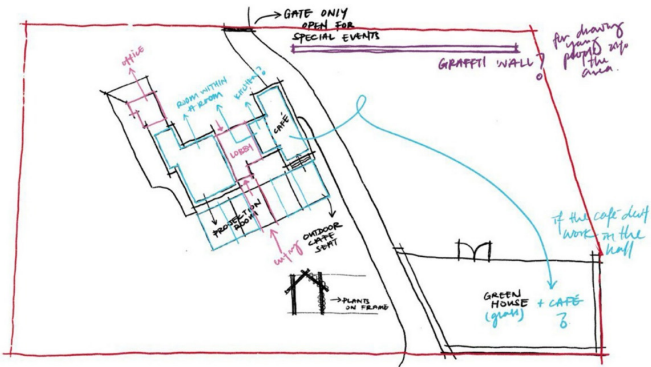 GATE ONLY
OPEN FOR
SPECIAL EVENTS
GRAFFITI WALL?
for drawing
young
people into
the
area.
OFFICE
ROOM WITHIN
A ROOM
KITCHEN?
CAFÉ
LOBBY
PROJECTION
ROOM
OUTDOOR
CAFE
SEAT
PLANTS
ON FRAME
if the café don't
work in the
hall
GREEN
HOUSE
(glass)
+ CAFÉ
?